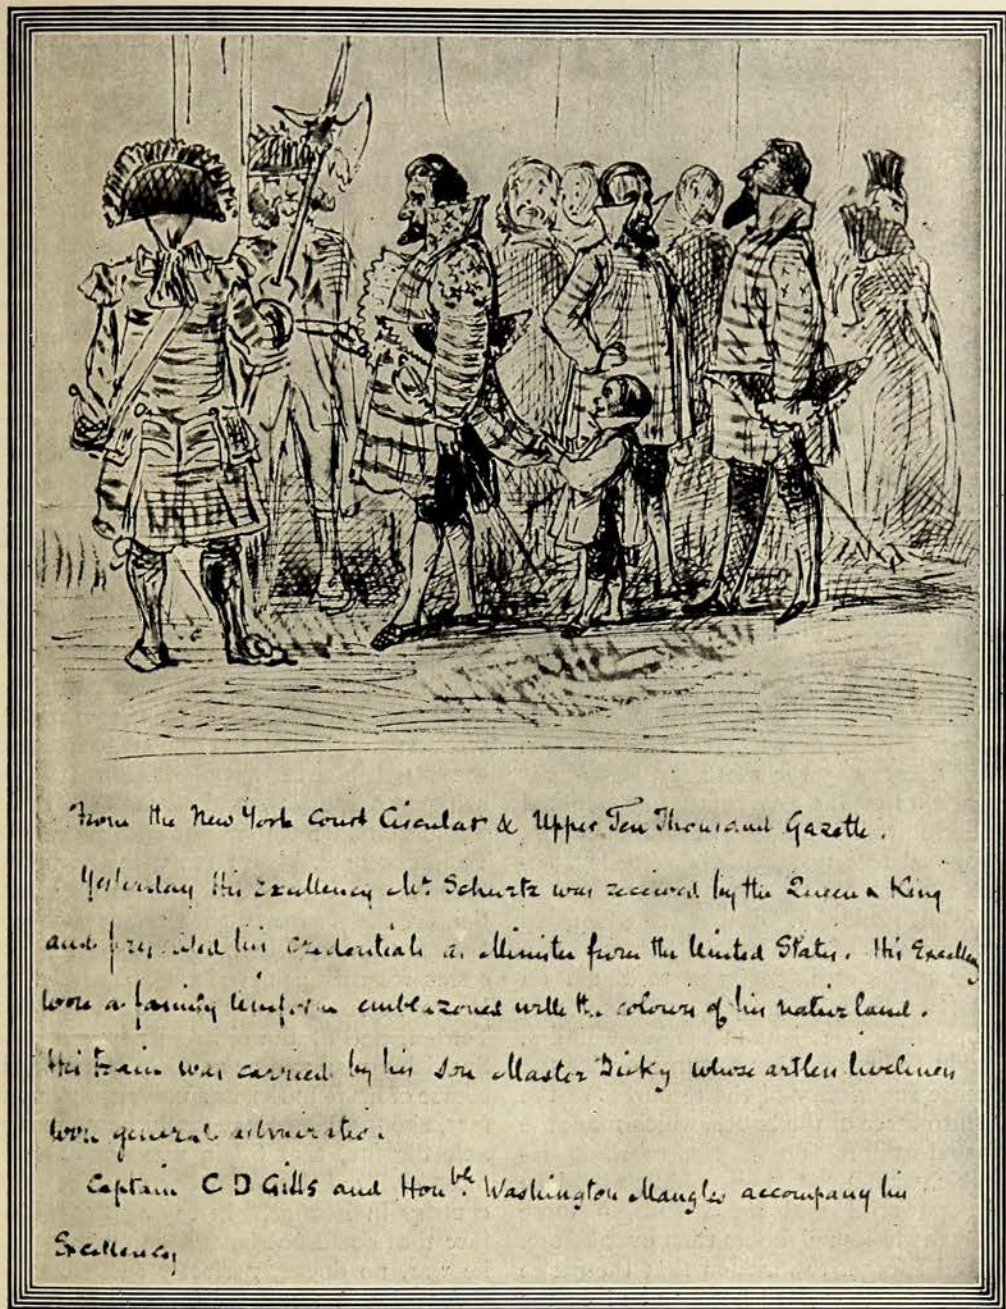 From the New York Court Circular & Upper Ten Thousand Gazette.
Yesterday His Excellency Mr Schurtz was received by the Queen & King
and his credentials as Minister from the United States. His Excellency
wore a uniform emblazoned with the colours of his native land.
His train was carried by his son Master Dicky whose artless liveliness
won general admiration.
Captain C D Gills and Honble. Washington Mangles accompany his
Excellency